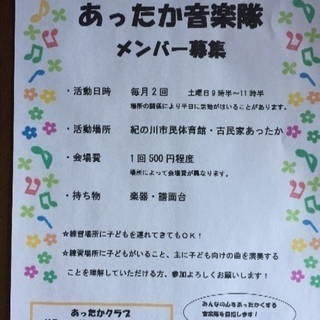 あったか音楽隊
メンバー募集
・活動日時　毎月２回　土曜日９時半～１１時半
場所の関係により平日に変動がはいることがあります。
・活動場所　紀の川市民体育館・古民家あったか
・会場費　１回５００円程度
場所によって会場費が異なります。
・持ち物　楽器・譜面台
☆練習場所に子どもを連れてきてもＯＫ！
☆練習場所に子どもがいること、主に子ども向けの曲を演奏する
ことを理解していただける方、参加よろしくお願いします！
あったかクラブ
みんなの心をあったかくする
音楽隊を目指します！